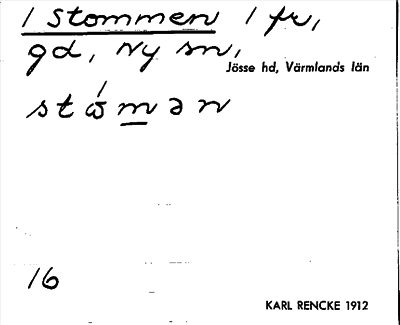 1 Stommen 1 fr,
gd, Ny sn,
Jösse hd, Värmlands län
stɷ́mən
16
KARL RENCKE 1912